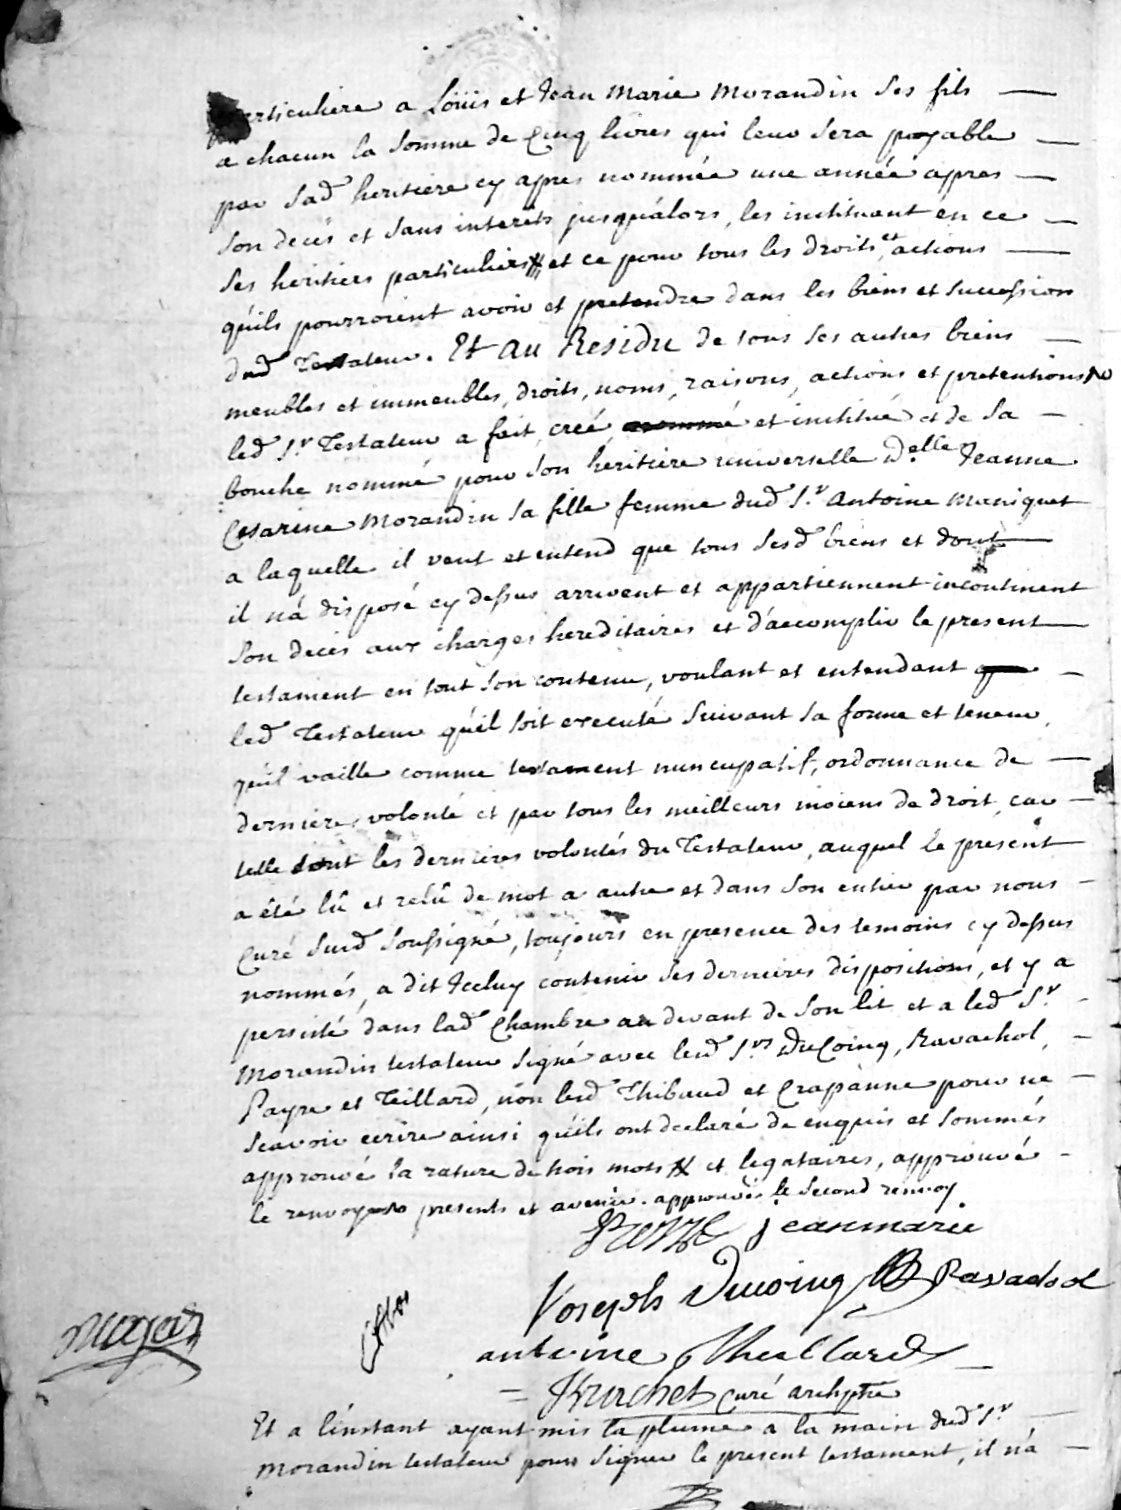 particuliere a Loüis et Jean Marie Morandin ses fils
a chacun la somme de Cinq livres qui leur sera payable
par sad heritiere cy apres nommée une année apres
son decés et sans interêts jusqu'alors, les instituant en ce
ses heritiers particuliers et ce pour tous les droits et actions
qu'ils pourroient avoir et pretendre dans les biens et succession
dud Testateur. Et au Residu de tous ses autres biens
meubles et immeubles, droits, noms, raisons, actions et pretentions
led Sr Testateur a fait, créé nommé et institué et de sa
bouche nommé pour son heritiere universelle Delle Jeanne
Cesarine Morandin sa fille femme dud Sr Antoine Maniquet
a laquelle il veut et entend que tous sesd biens et dont
il n'a disposé cy dessus arrivent et appartiennent incontinent
son decés aux charges hereditaires et d'accomplir le present
testament en tout son contenu, voulant et entendant que
led Testateur qu'il soit executé suivant sa forme et teneur,
qu'il vaille comme testament nuncupatif, ordonnance de
derniere volonté et par tous les meilleurs moiens de droit, car
telle sont les dernieres volontés du Testateur, auquel le present
a été lû et relû de mot a autre et dans son entier par nous
Curé susd soussigné, toujours en presence des temoins cy dessus
nommés, a dit Icelluy contenir ses dernieres dispositions, et y a
persisté dans lad Chambre au devant de son lit et a led Sr
Morandin testateur signé avec lesd Srs DuCoing, Ravachol,
Payre et Teillard, non lesd Thibaud et Crapanne pour ne
scavoir ecrire ainsi qu'ils ont declaré de enquis et sommés
approuvé la rature de trois mots et legataires, approuvé
le renvoy presents et avenir. approuvés le second renvoy
jeanmarie
Joseph Ducoing Ravachol
antoine Theillard
curé archiptre
Et a l'instant ayant mis la plume a la main dud Sr
Morandin testateur pour signer le present testament, il n'a